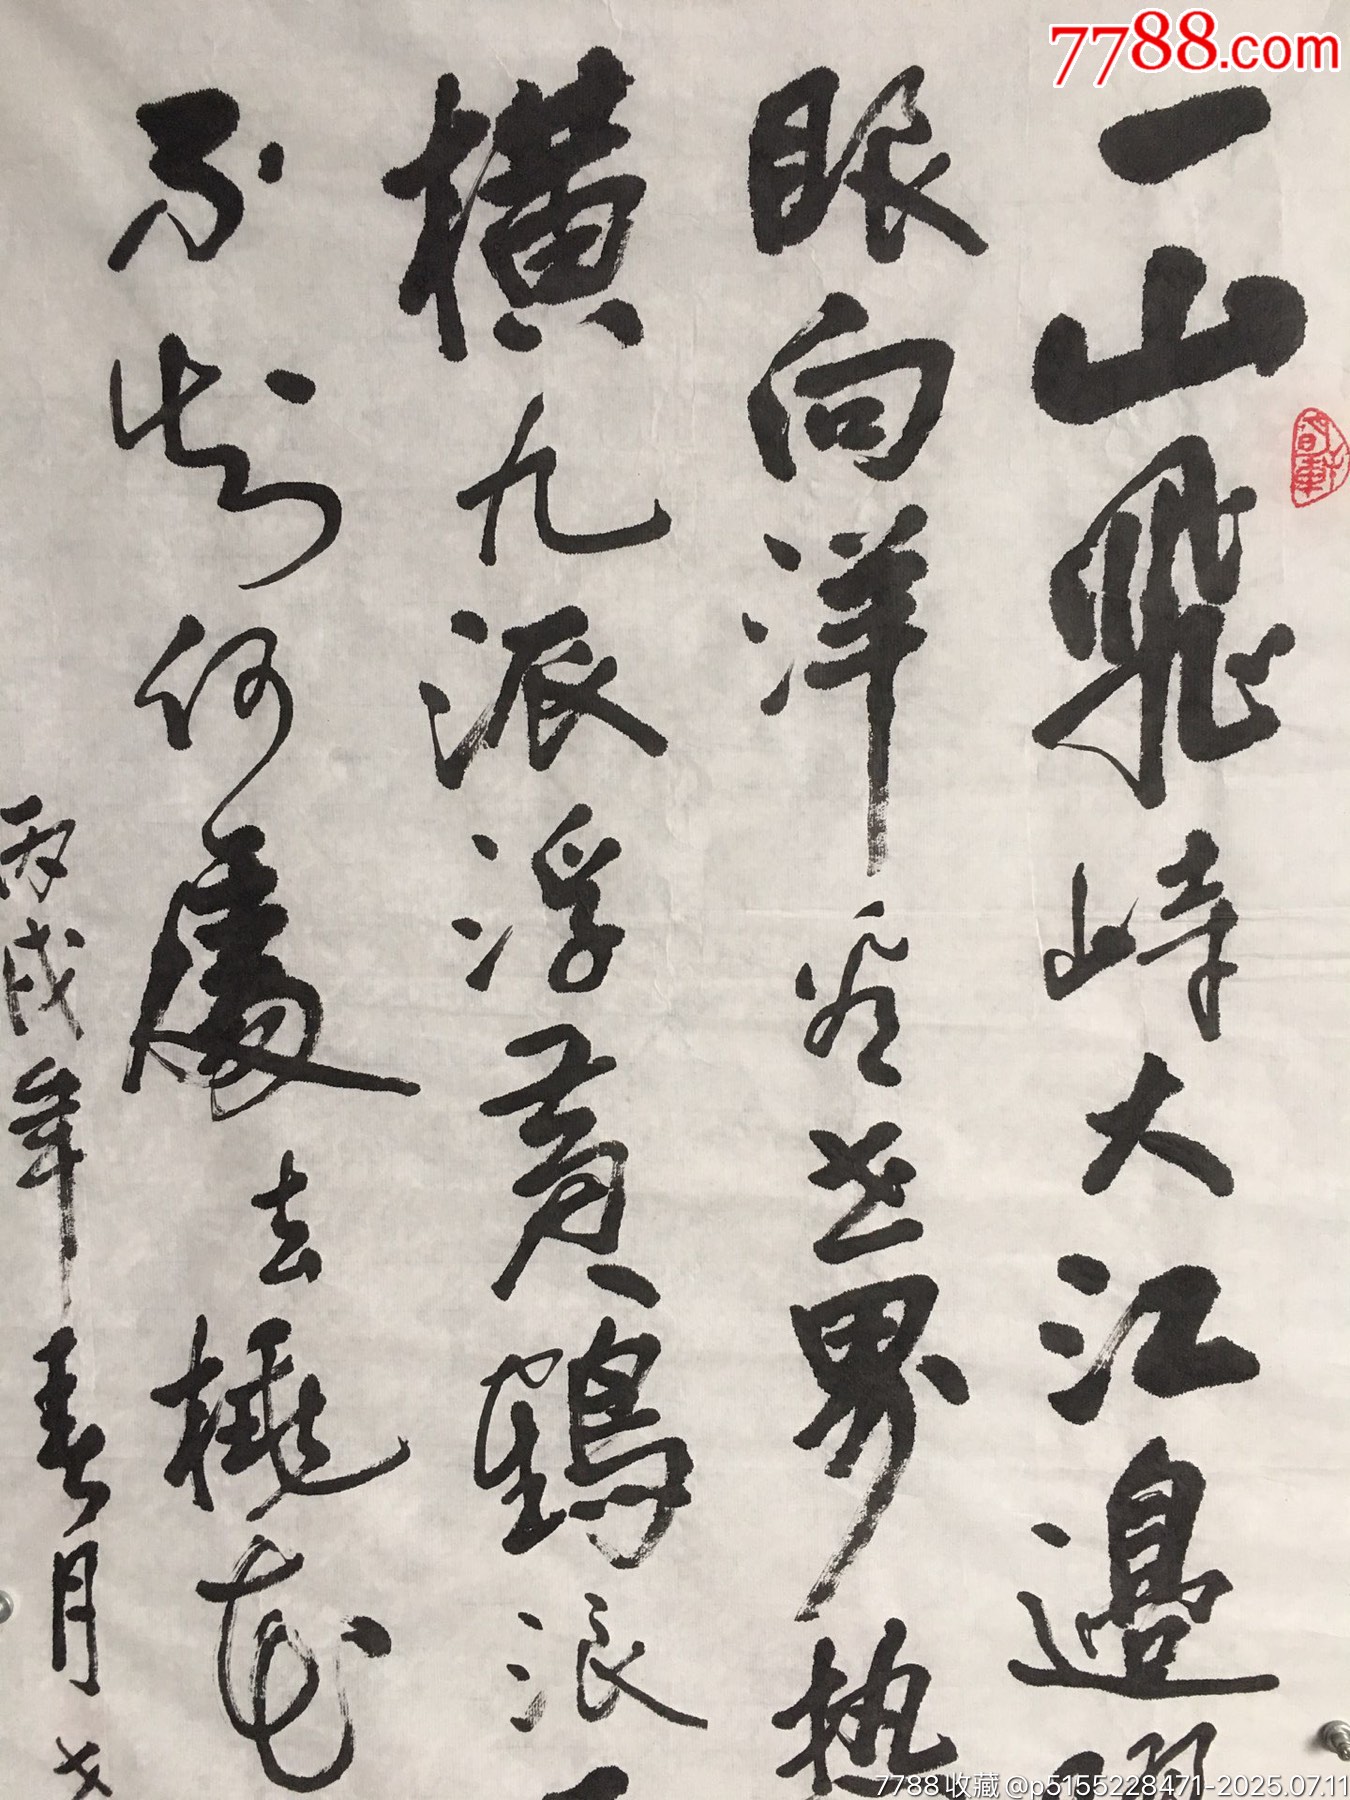 7788.com
一山飛峙大江邊
眼向洋看世界热
横九派浮黄鶴浪
不知何處去桃花
丙戌年春月
7788收藏 @p5155228471-2025.07.11